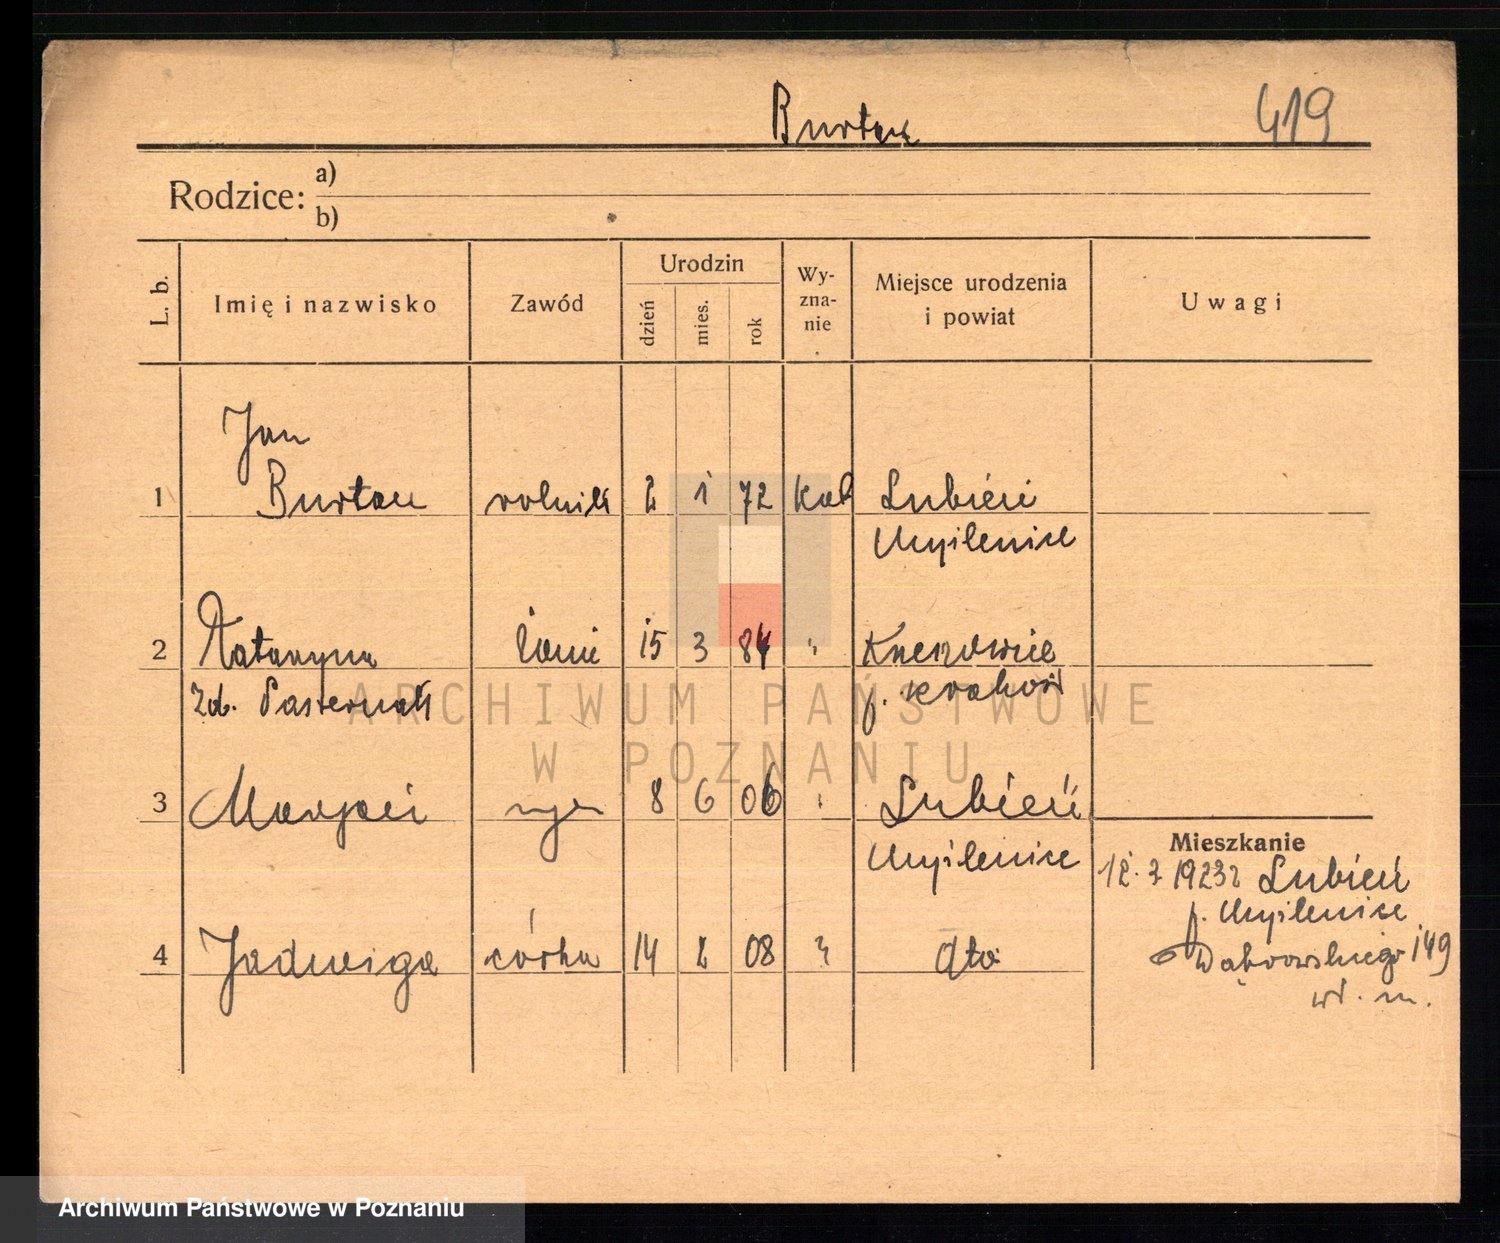 Burtan
419
Rodzice: a)
b)
L. b.
Imię i nazwisko
Zawód
Urodzin
dzień
mies.
rok
Wy-
zna-
nie
Miejsce urodzenia
i powiat
Uwagi
Jan
1 Burtan rolnik 2 1 72 kat Lubień
Myślenice
2 Katarzyna żona 15 3 84 "
zd. Pasternak p. Kraków
3 8 6 06 " Lubień
Myślenice
4 Jadwiga córka 14 2 08 " dto
Mieszkanie
12. 7. 1923 z Lubień
p. Myślenice
Dąbrowskiego 149
wł. m.
ARCHIWUM PAŃSTWOWE
W POZNANIU
Archiwum Państwowe w Poznaniu